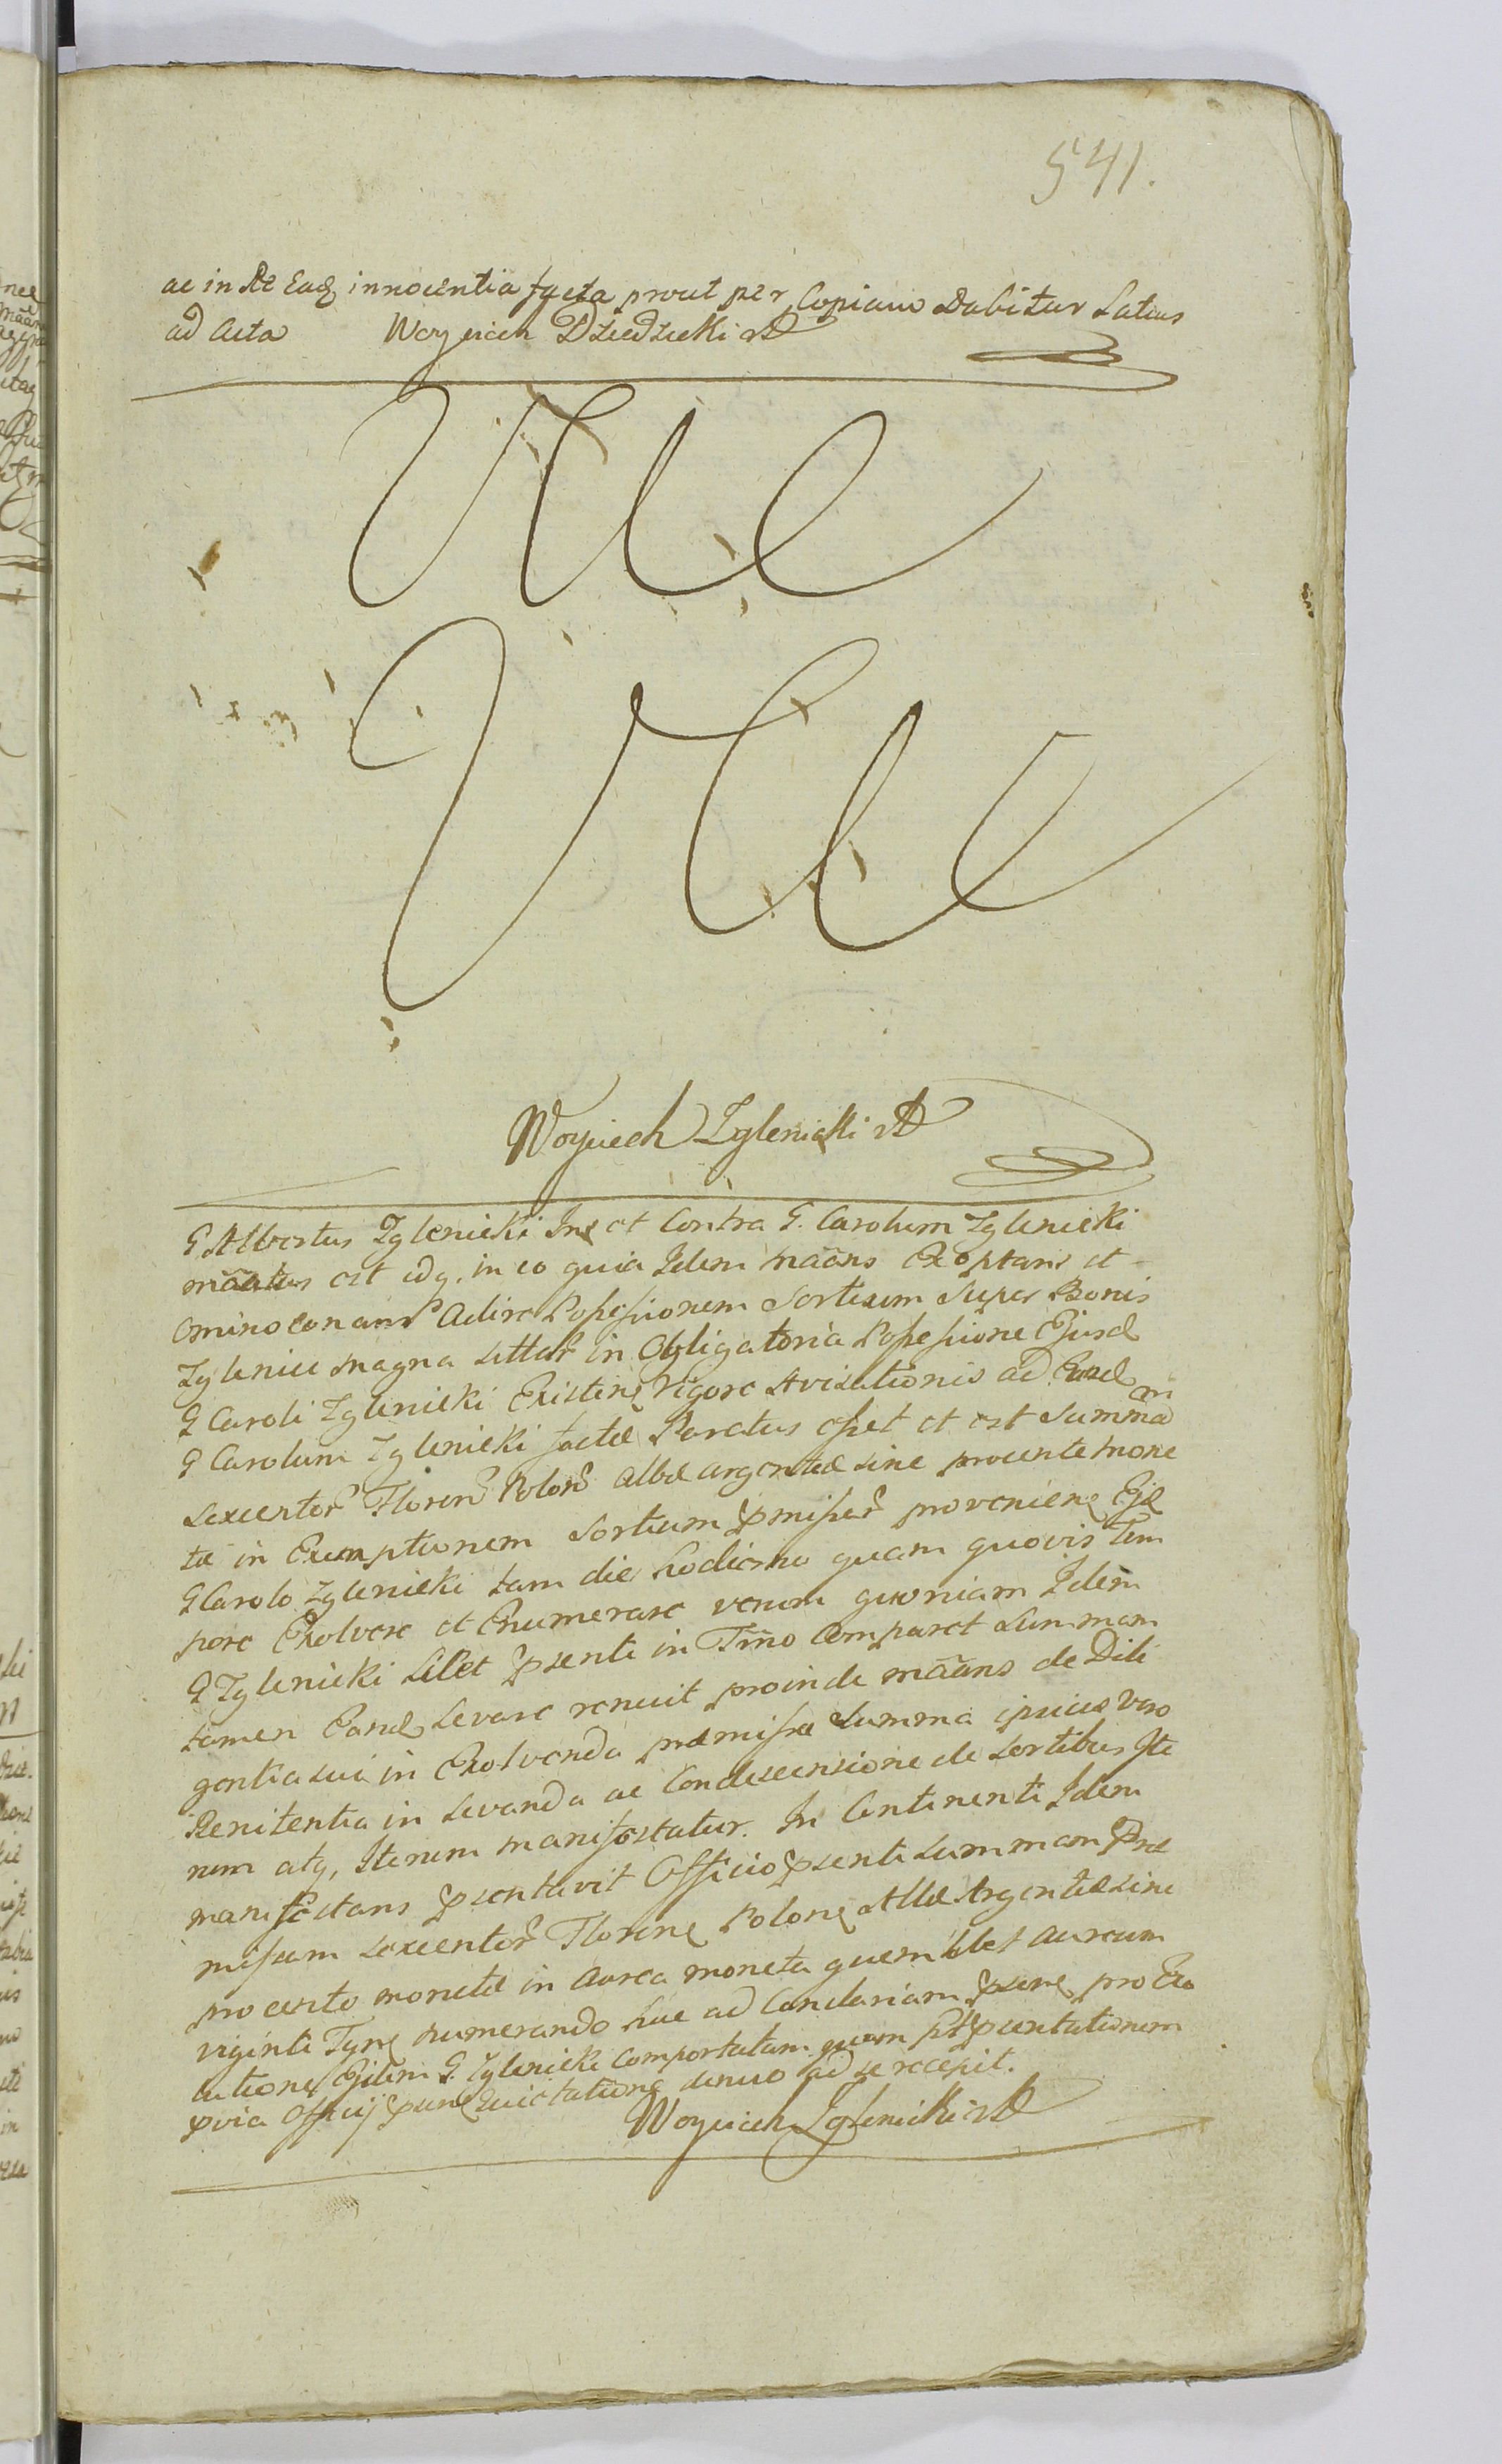 541.
ae in Re Eadq innocentia facta prout per Copiam Dabitur Latius
ad Acta Woyciech Dziedzicki
Woyciech Zglenicki
G Albertus Zglenicki Inq et Contra G. Carolum Zglenicki
mãatus est idq, in eo quia Idem mãans Exoptans et
omino conans Adire Possessionem Sortium super Bonis
Zglenice magna sittar in Obligatoria Possessione Ejusd
G Caroli Zglenicki Existenq Vigore Avisationis ad Eund
G Carolum Zglenicki factæ Paratus esset et est Summã
sexcentor Floren Polon albæ argenteæ sine procento mone
tæ in Exemptionem Sortium pmissar provenienq Ejd
G Carolo Zglenicki tam die hodierna quam quovis tem
pore Exolvere et Enumerare verum quoniam Idem
G Zglenicki Licet psenti in Tmno Comparet Summam
tamen Eand Levare renuit proinde mãans de Dili
gentia sui in Exolvenda præmissa Summa ipsius vero
Renitentia in Levanda ac Condescensione de Sortibus Ite
rum atq, Iterum manifestatur. In Continenti Idem
manifestans psentavit Officio psenti Summam Præ
missam sexcentor Florenq Polonq Albæ Argenteæ sine
procento monetæ in Aurea moneta quemlibet aureum
viginti Tynf numerando huc ad Cancelariam psenq pro Exo
lutione Eidem G. Zglenicki Comportatam quam pst psentationem
pvia Officij psenq Quietatione denuo ad se recepit.
Woyciech Zglenicki